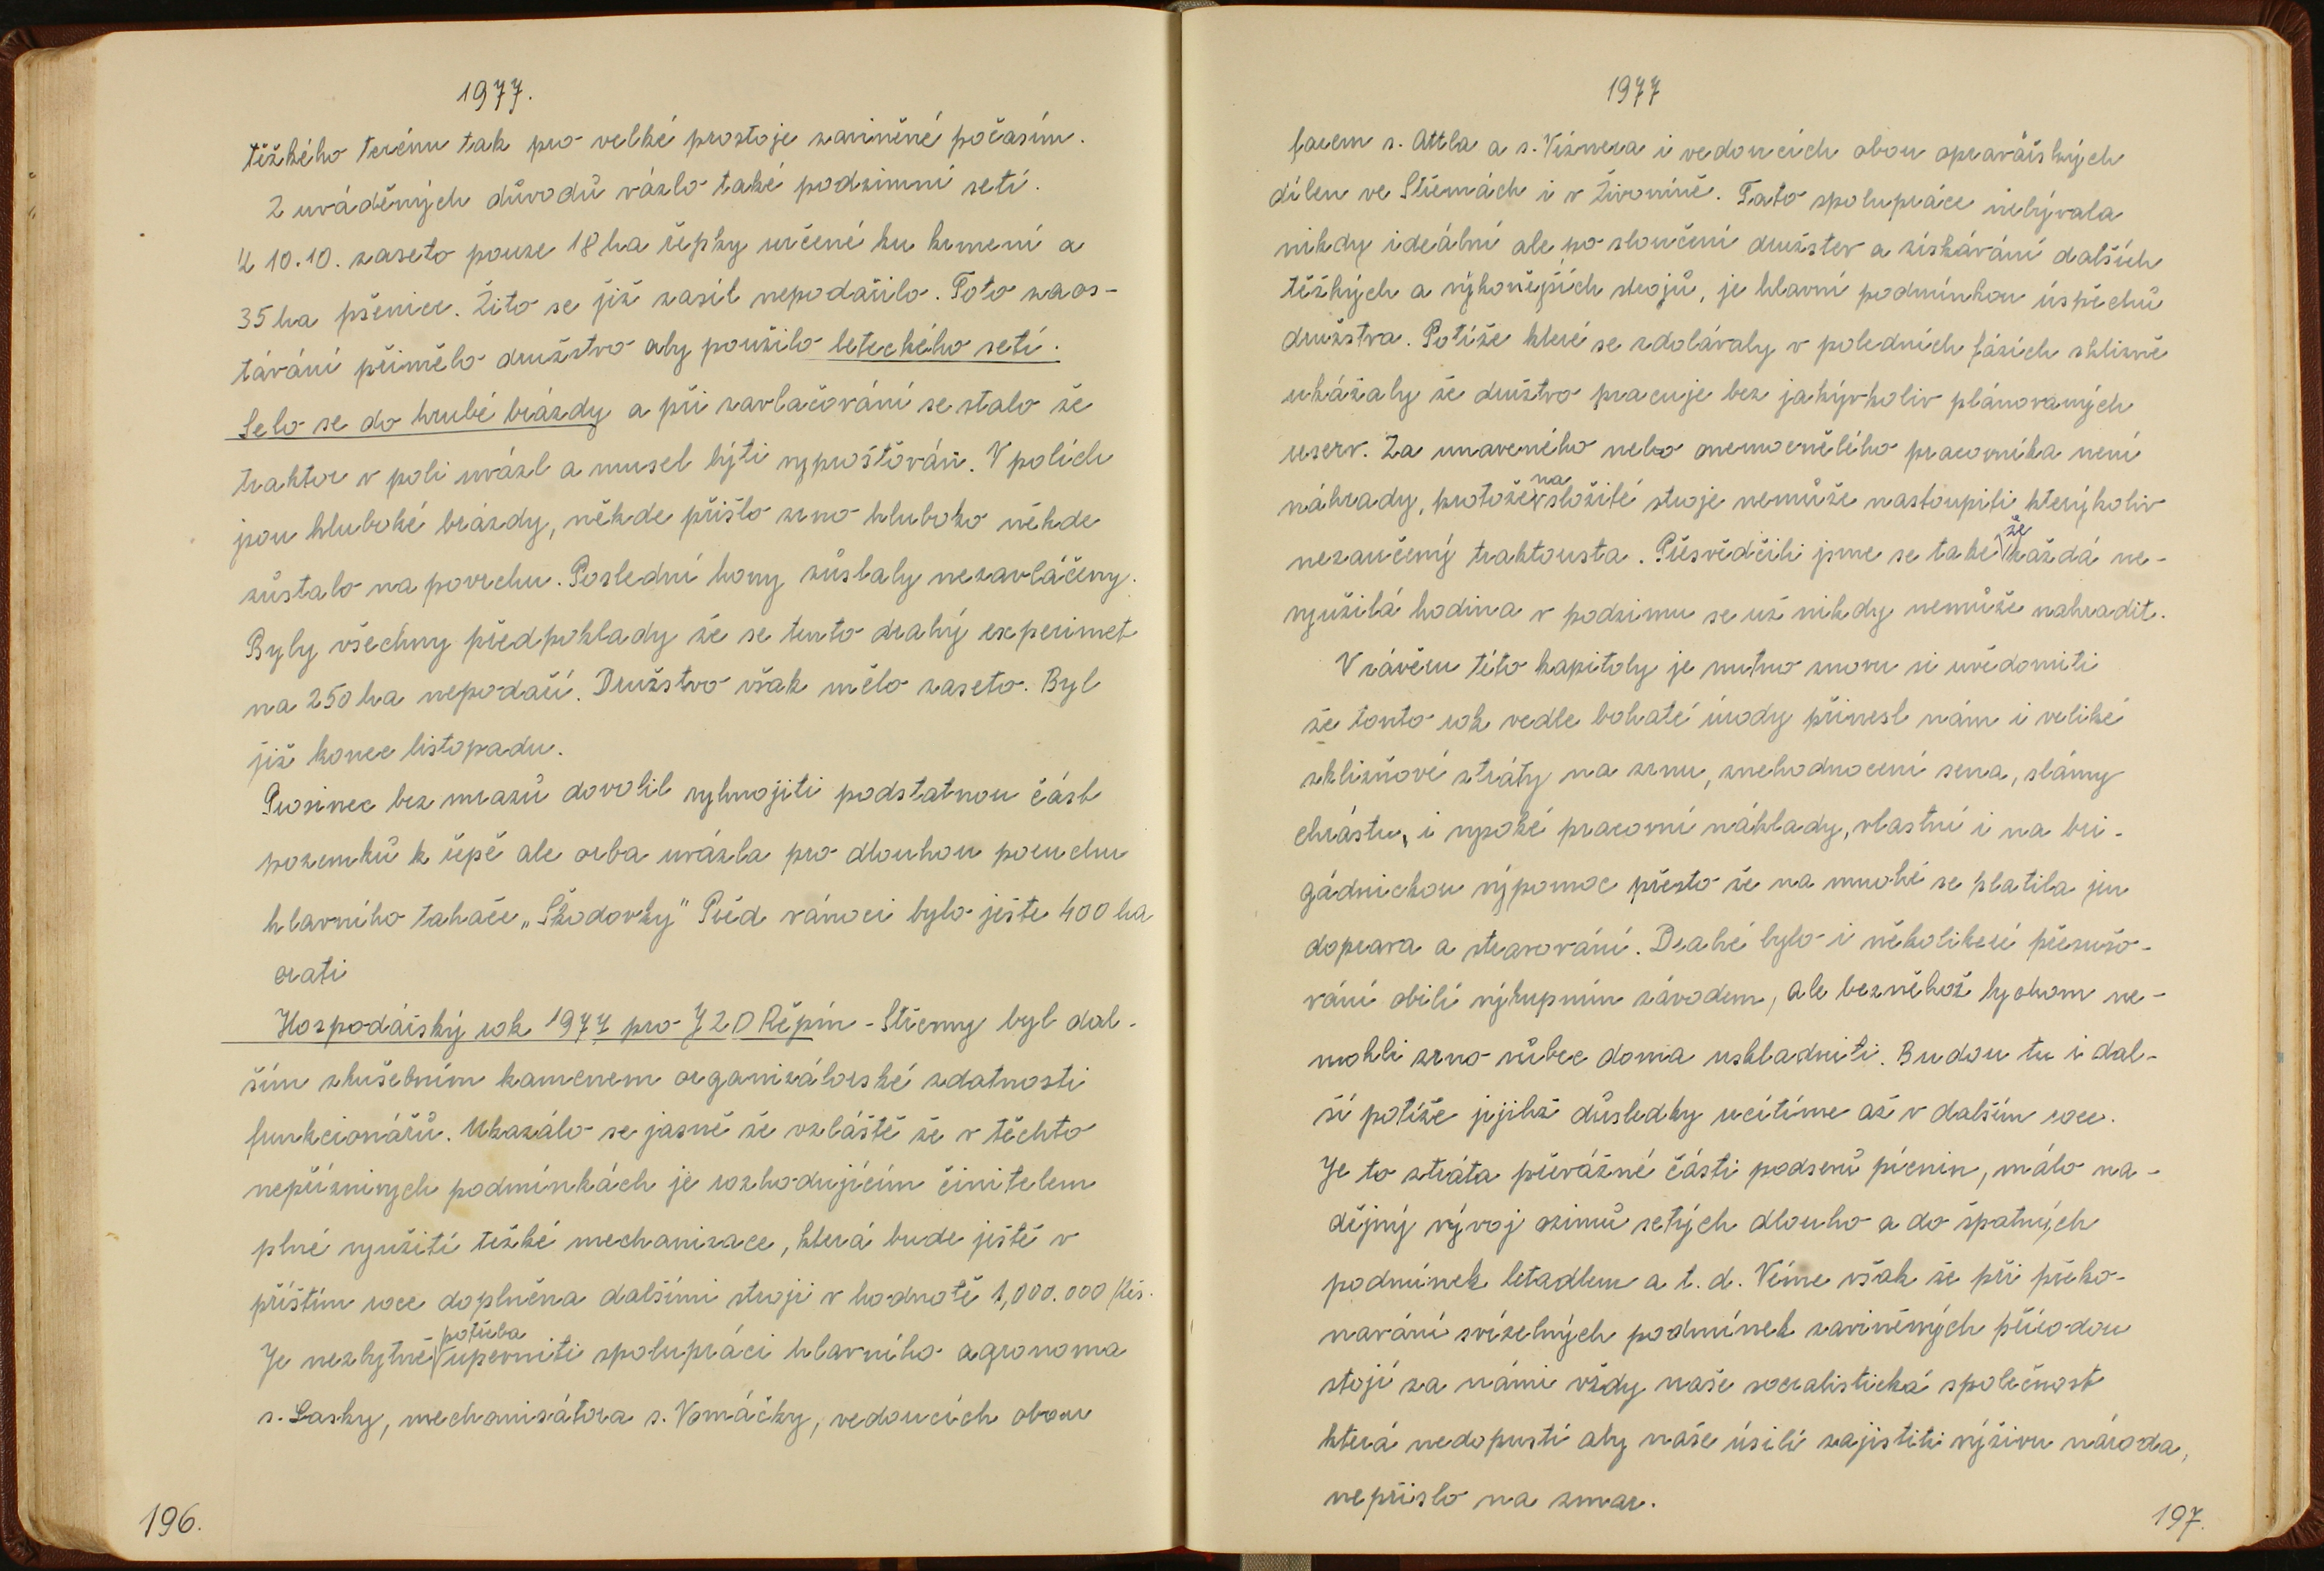 1977.
těžkého terénu tak pro velké prostoje zaviněné počasím.
Z uváděných důvodů vázlo také podzimní setí.
K 10.10. zaseto pouze 18 ha řepky určené ku krmení a
35 ha pšenice. Žito se již zasít nepodařilo. Toto zaos-
távání přimělo družstvo aby použilo leteckého setí.
Selo se do hrubé brázdy a při zavlačování se stalo že
traktor v poli uvázl a musel býti vyprošťován. V polích
jsou hluboké brázdy, někde přišlo zrno hluboko někde
zůstalo na povrchu. Poslední hony zůstaly nezavláčeny.
Byly všechny předpoklady že se tento drahý experimet
na 250 ha nepodaří. Družstvo však mělo zaseto. Byl
již konec listopadu.
Prosinec bez mrazů dovolil vyhnojiti podstatnou část
pozemků k řepě ale orba uvázla pro dlouhou poruchu
hlavního tahače „Škodovky" Před vánoci bylo ješte 400 ha
orati
Hospodářský rok 1977 pro JZD Řepín - Střemy byl dal-
ším zkušebním kamenem organizátorské zdatnosti
funkcionářů. Ukazálo se jasně že vzláště že v těchto
nepříznivých podmínkách je rozhodujícím činitelem
plné využití težké mechanizace, která bude ještě v
příštím roce doplněna dalšími stroji v hodnotě 1,000.000 Kčs.
Je nezbytně potřeba upevniti spolupráci hlavního agronoma
s. Lasky, mechanisátora s. Vomáčky, vedoucích obou
196.
1977
farem s. Attla a s. Víznera i vedoucích obou opravářských
dílen ve Střemách i v Živoníně. Tato spolupráce nebývala
nikdy ideální ale po sloučení družstev a získávání dalších
těžkých a výkonějších strojů, je hlavní podmínkou úspěchů
družstva. Potíže které se zdolávaly v poledních fázích sklizně
ukázaly že družtvo pracuje bez jakýkoliv plánovaných
reserv. Za unaveného nebo onemocnělého pracovníka není
náhrady, protože na složité stroje nemůže nastoupiti kterýkoliv
nezaučený traktorista. Přesvědčili jsme se take že každá ne-
využilá hodina v podzimu se už nikdy nemůže nahradit.
V závěru této kapitoly je nutno znovu si uvědomiti
že tonto rok vedle bohaté úrody přinesl nám i veliké
sklizňové ztráty na zrnu, znehodnocení sena, slámy
chrástu, i vysoké pracovní náklady, vlastní i na bri-
gádnickou výpomoc přesto že na mnohé se platila jen
doprava a stravování. Drahé bylo i několikeré přesušo-
vání obilí výkupním závodem, ale bezněhož bychom ne-
mohli zrno vůbec doma uskladniti. Budou tu i dal-
ší potíže jejichž důsledky ucítíme až v dalším roce.
Je to ztráta převážné části podsevů pícnin, málo na-
dějný vývoj ozimů setých dlouho a do špatných
podmínek letadlem a t. d. Víme však že při překo-
navání svízelných podmínek zaviněných přírodou
stojí za námi vždy naše socialistická společnost
která nedopustí aby naše úsilí zajistiti výživu národa,
nepřislo na zmar.
197.